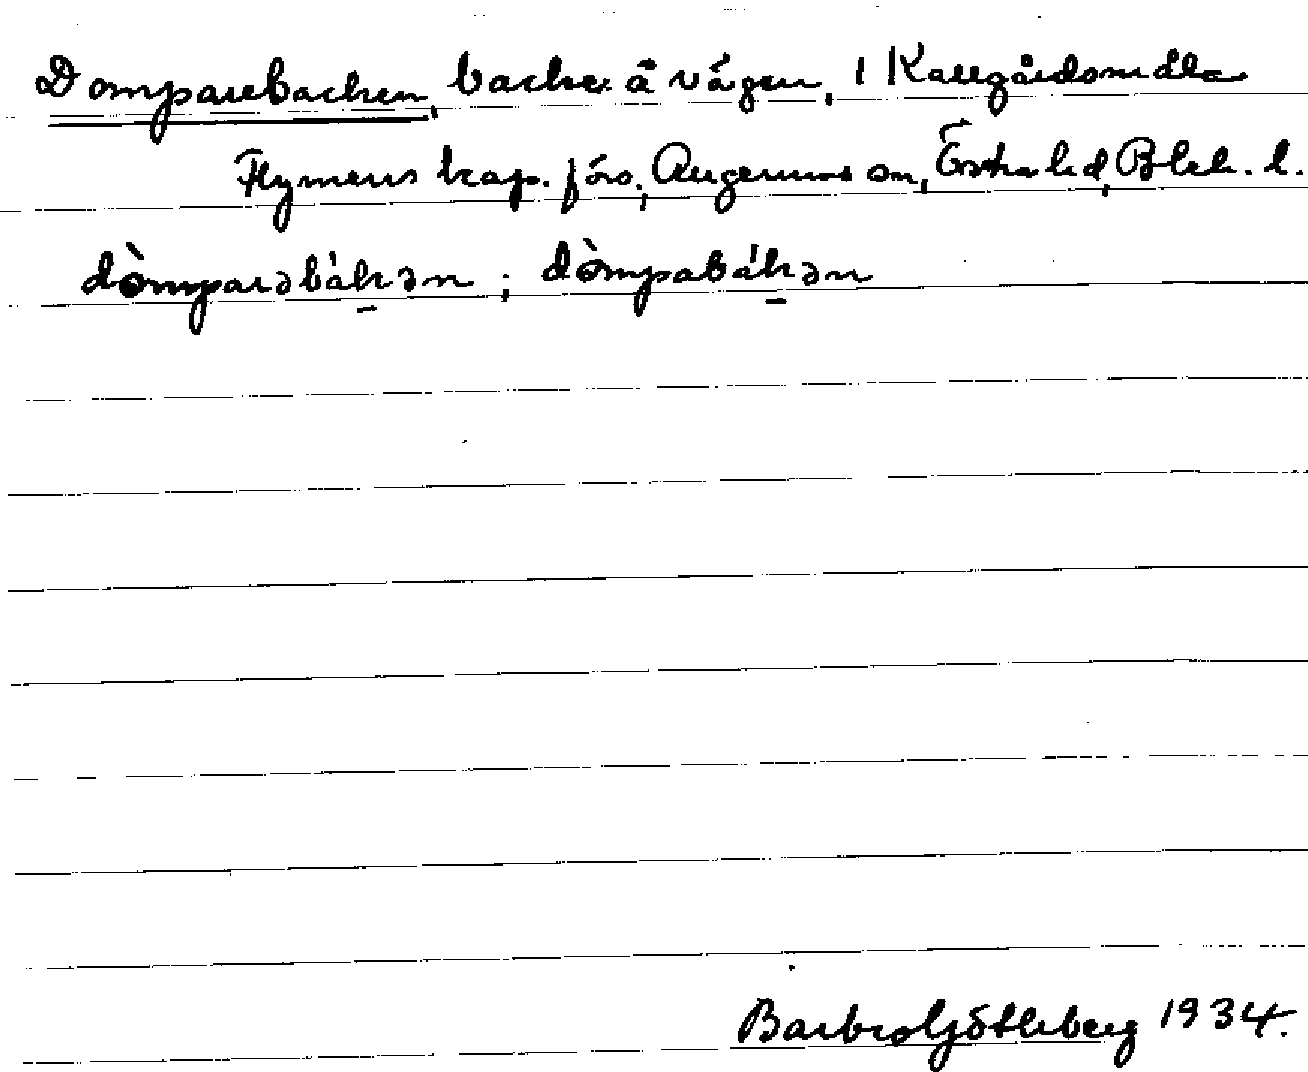 Domparebacken, backe å vägen, i Karegårdsmåla
Flymens kap. förs., Augerums sn, Östra hd, Blek. l.
dòmparəbákən ; dòmpabákən
Barbro Götheberg 1934.